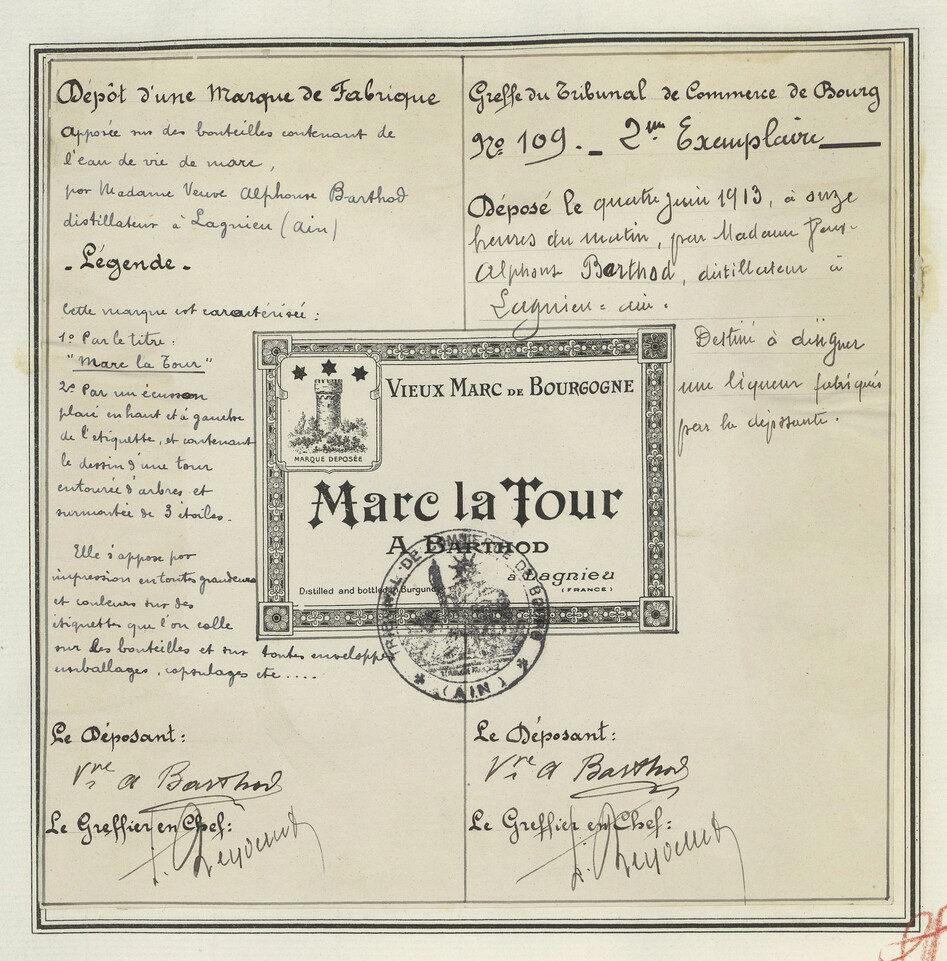 Dépôt d'une Marque de Fabrique
apposée sur des bouteilles contenant de
l'eau de vie de marc,
par Madame Veuve Alphonse Barthod
distillateur à Lagnieu (Ain)
- Légende -
Cette marque est caractérisée :
1º Par le titre :
"Marc la Tour"
2º Par un écusson
placé en haut et à gauche
de l'etiquette, et contenant
le dessin d'une tour
entourée d'arbres et
surmontée de 3 étoiles.
Elle s'appose par
impression en toutes grandeurs
et couleurs sur des
étiquettes que l'on colle
sur des bouteilles et sur toutes enveloppes
emballages, capsulages etc....
Le Déposant :
Vve A Barthod
Le Greffier en Chef :
Greffe du Tribunal de Commerce de Bourg
Nº 109. - 2me Exemplaire
Déposé le quatre juin 1913, à onze
heures du matin, par Madame Veuve
Alphonse Barthod, distillateur à
Lagnieu - ain.
Destiné à désigner
une liqueur fabriquée
par la déposante.
MARQUE DEPOSÉE
VIEUX MARC DE BOURGOGNE
Marc la Tour
A BARTHOD
à Lagnieu
(FRANCE)
Distilled and bottled Burgundy
TRIBUNAL DE COMMERCE DE BOURG
(AIN)
Le Déposant :
Vve A Barthod
Le Greffier en Chef :